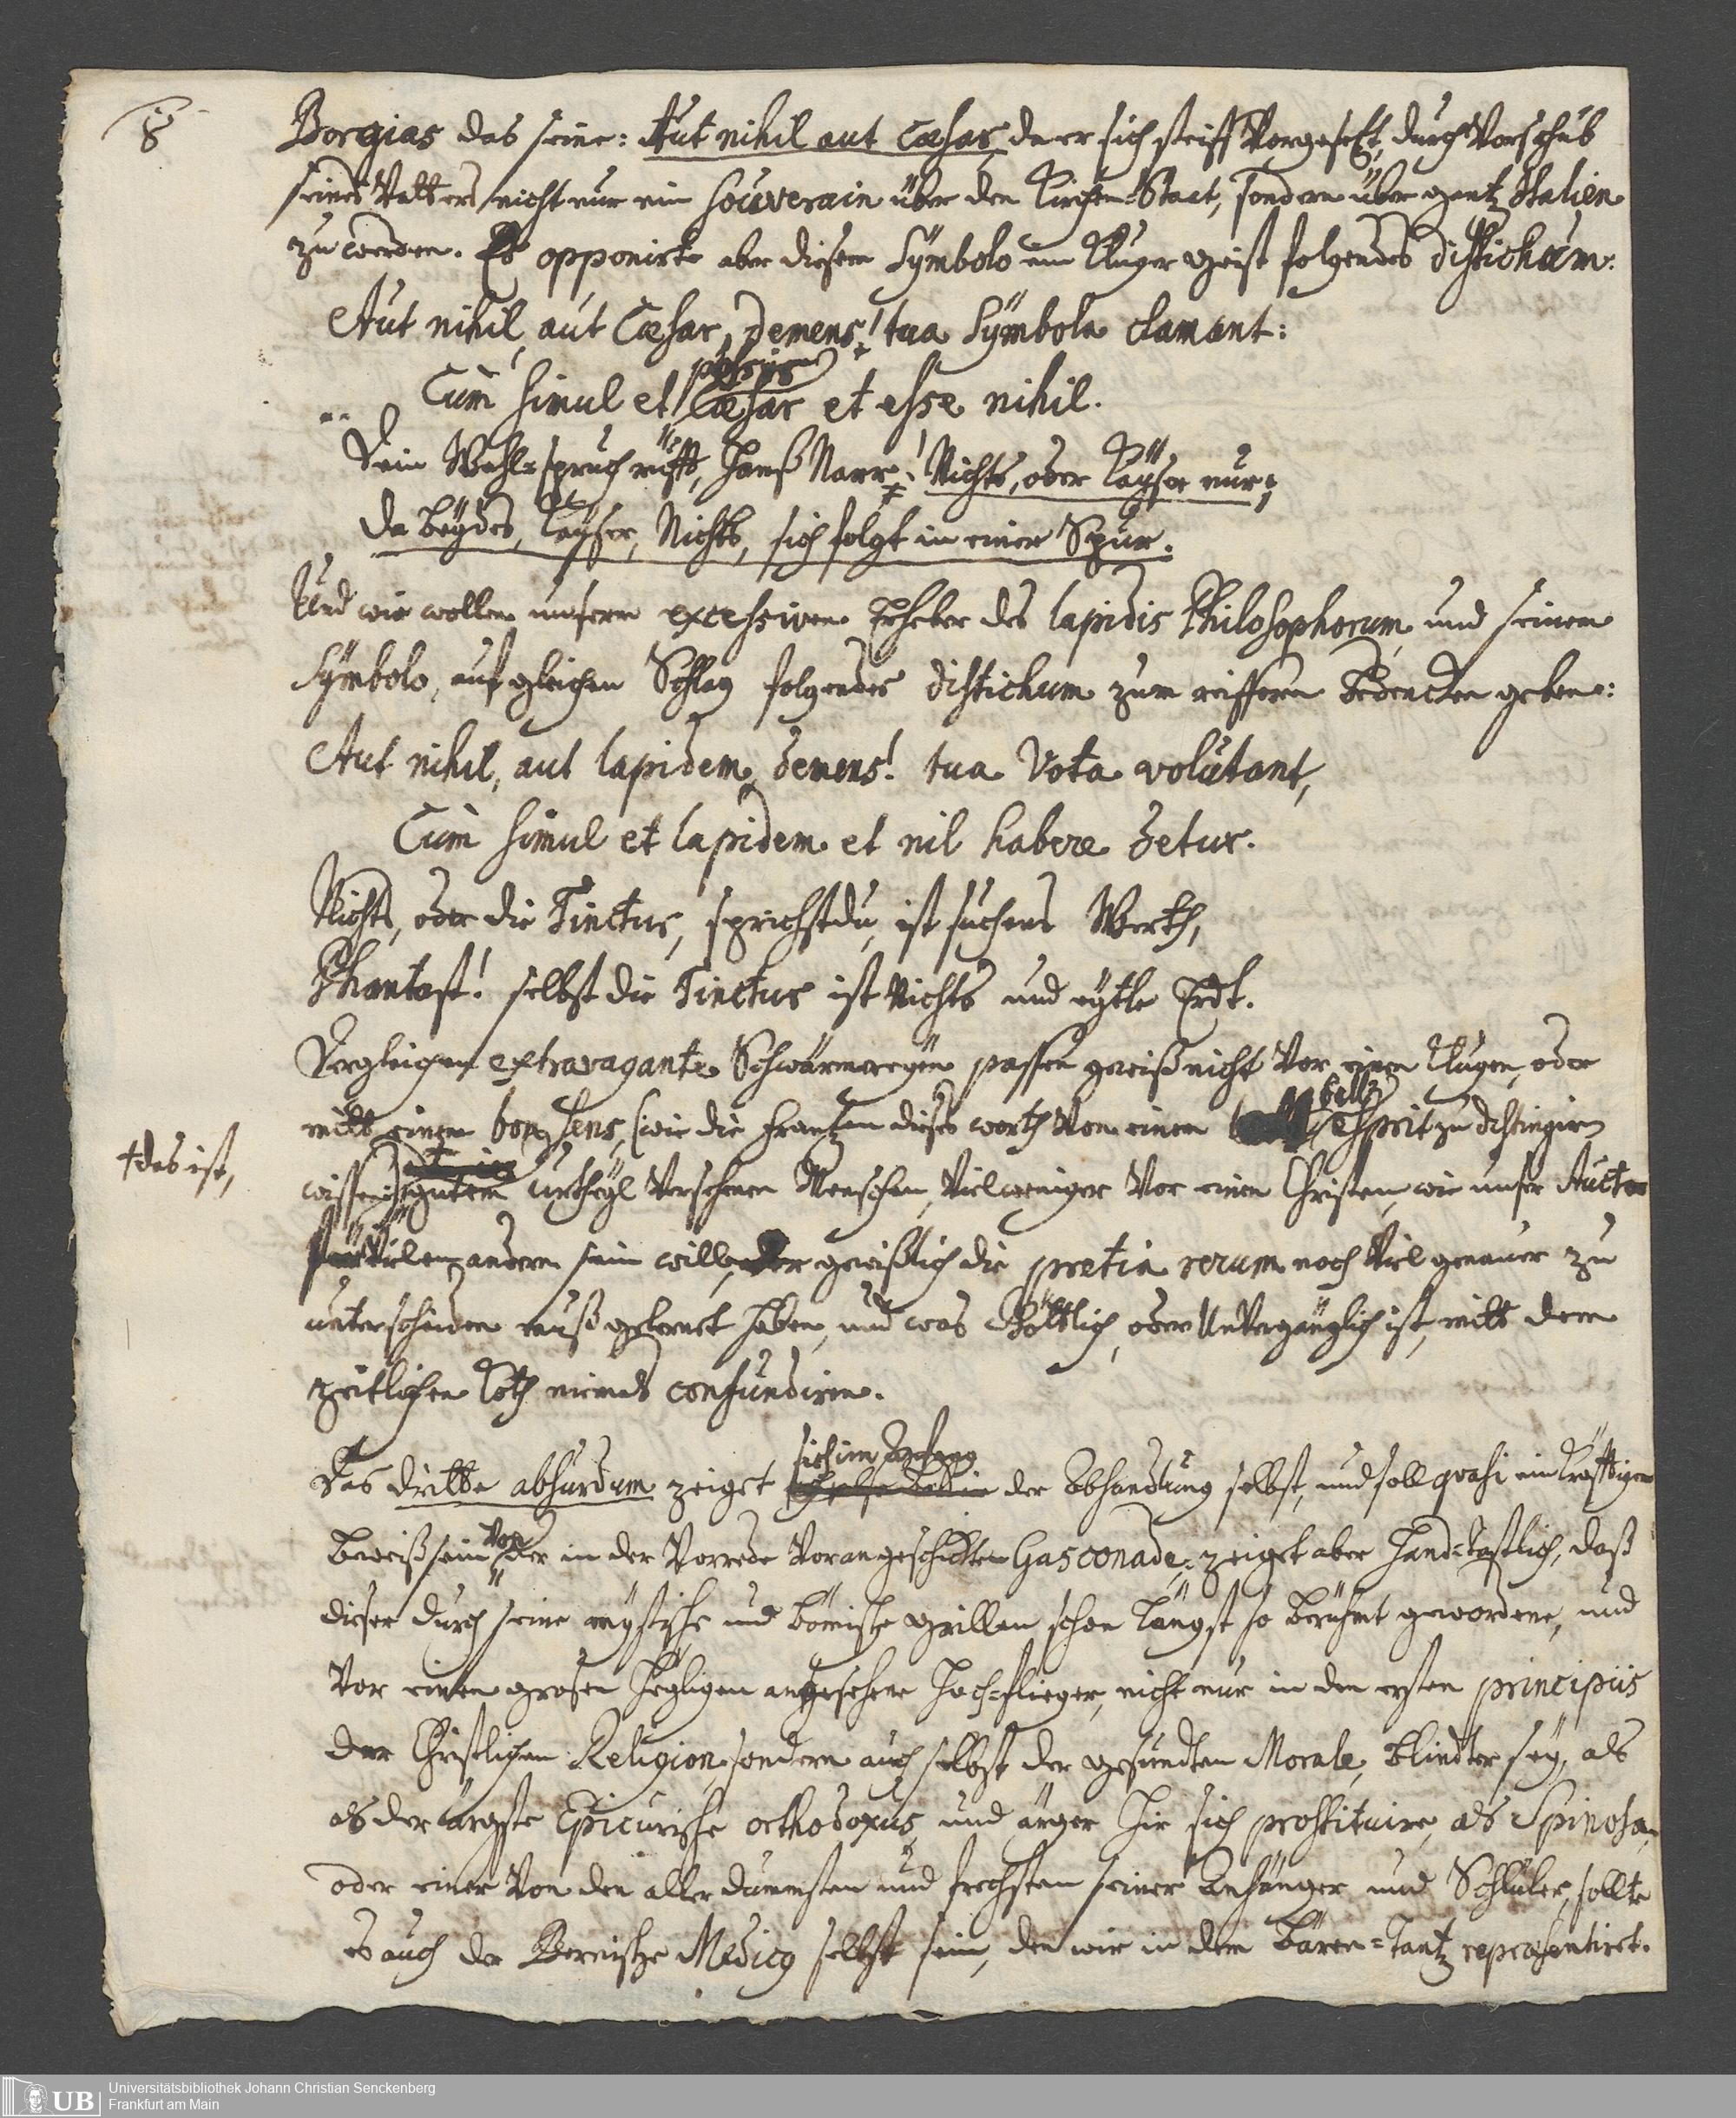 8
Borgias das seine: Aut nihil aut Cæsar, da er sich steiff vorgesetzt, durch Vorschub
seines Vatters nicht nur ein Souverain über den Kirchen-Staat, sondern über gantz Italien
zu werden. Es opponirte aber diesem Symbolo ein kluger Geist folgendes distichum:
Aut nihil, aut Cæsar, demens! tua Symbola clamant:
Cum simul et Cæsar possis et esse nihil.
Dein Wahl-spruch rüfft, Hanß Narr! Nichts, oder Kayser nur;
Da beydes, Kayser, Nichts, sich folgt in einer Spur.
Und wir wollen unserm excessiven Erheber des lapidis Philosophorum, und seinem
Symbolo, auf gleichen Schlag folgendes distichum zum reifferen Bedencken geben:
Aut nihil, aut lapidem, demens! tua Vota volutant,
Cum simul et lapidem et nil habere detur.
Nichts, oder die Tinctur, sprichst du, ist suchens Werth,
Phantast! selbst die Tinctur ist Nichts und eytle Erdt.
Dergleichen extravagante Schwärmereyen passen gewiß nicht vor einen klugen, oder
mitt einem bon sens, (wie die Frantzen dieses worth von einem bell esprit zu distingiren
†das ist,
wissen) gutem urtheyl versehenen Menschen, vielweniger vor einen Christen, wie unser Auctor
vielen andern sein will, der gewißlich die pretia rerum noch viel genauer zu
unterscheiden muß gelernet haben, und was Göttlich, oder unvergänglich ist, mitt dem
zeitlichen Koth niemals confundiren.
Das dritte absurdum zeiget sich im der Abhandlung selbst, und soll quasi ein kräfftiger
Beweiß sein von der in der Vorrede vorangeschickten Gasconade; zeiget aber Hand-tastlich, daß
dieser durch seine mystische und Grillen schon längst so berühmt gewordene, und
vor einen grosen Heyligen angesehene Hoch-flieger, nicht nur in den ersten principiis
der Christlichen Religion, sondern auch selbst der gesundten Morale, blindter sey, als
als der ärgste Epicurische orthodoxus, und ärger hie sich prostituire, als Spinosa,
oder einer von den aller dummsten und frechsten seiner Anhänger und Schüler, sollte
es auch der Bernische Medicus selbst sein, den wir in dem Bären-Tantz repræsentiret.
UB
Universitätsbibliothek Johann Christian Senckenberg
Frankfurt am Main